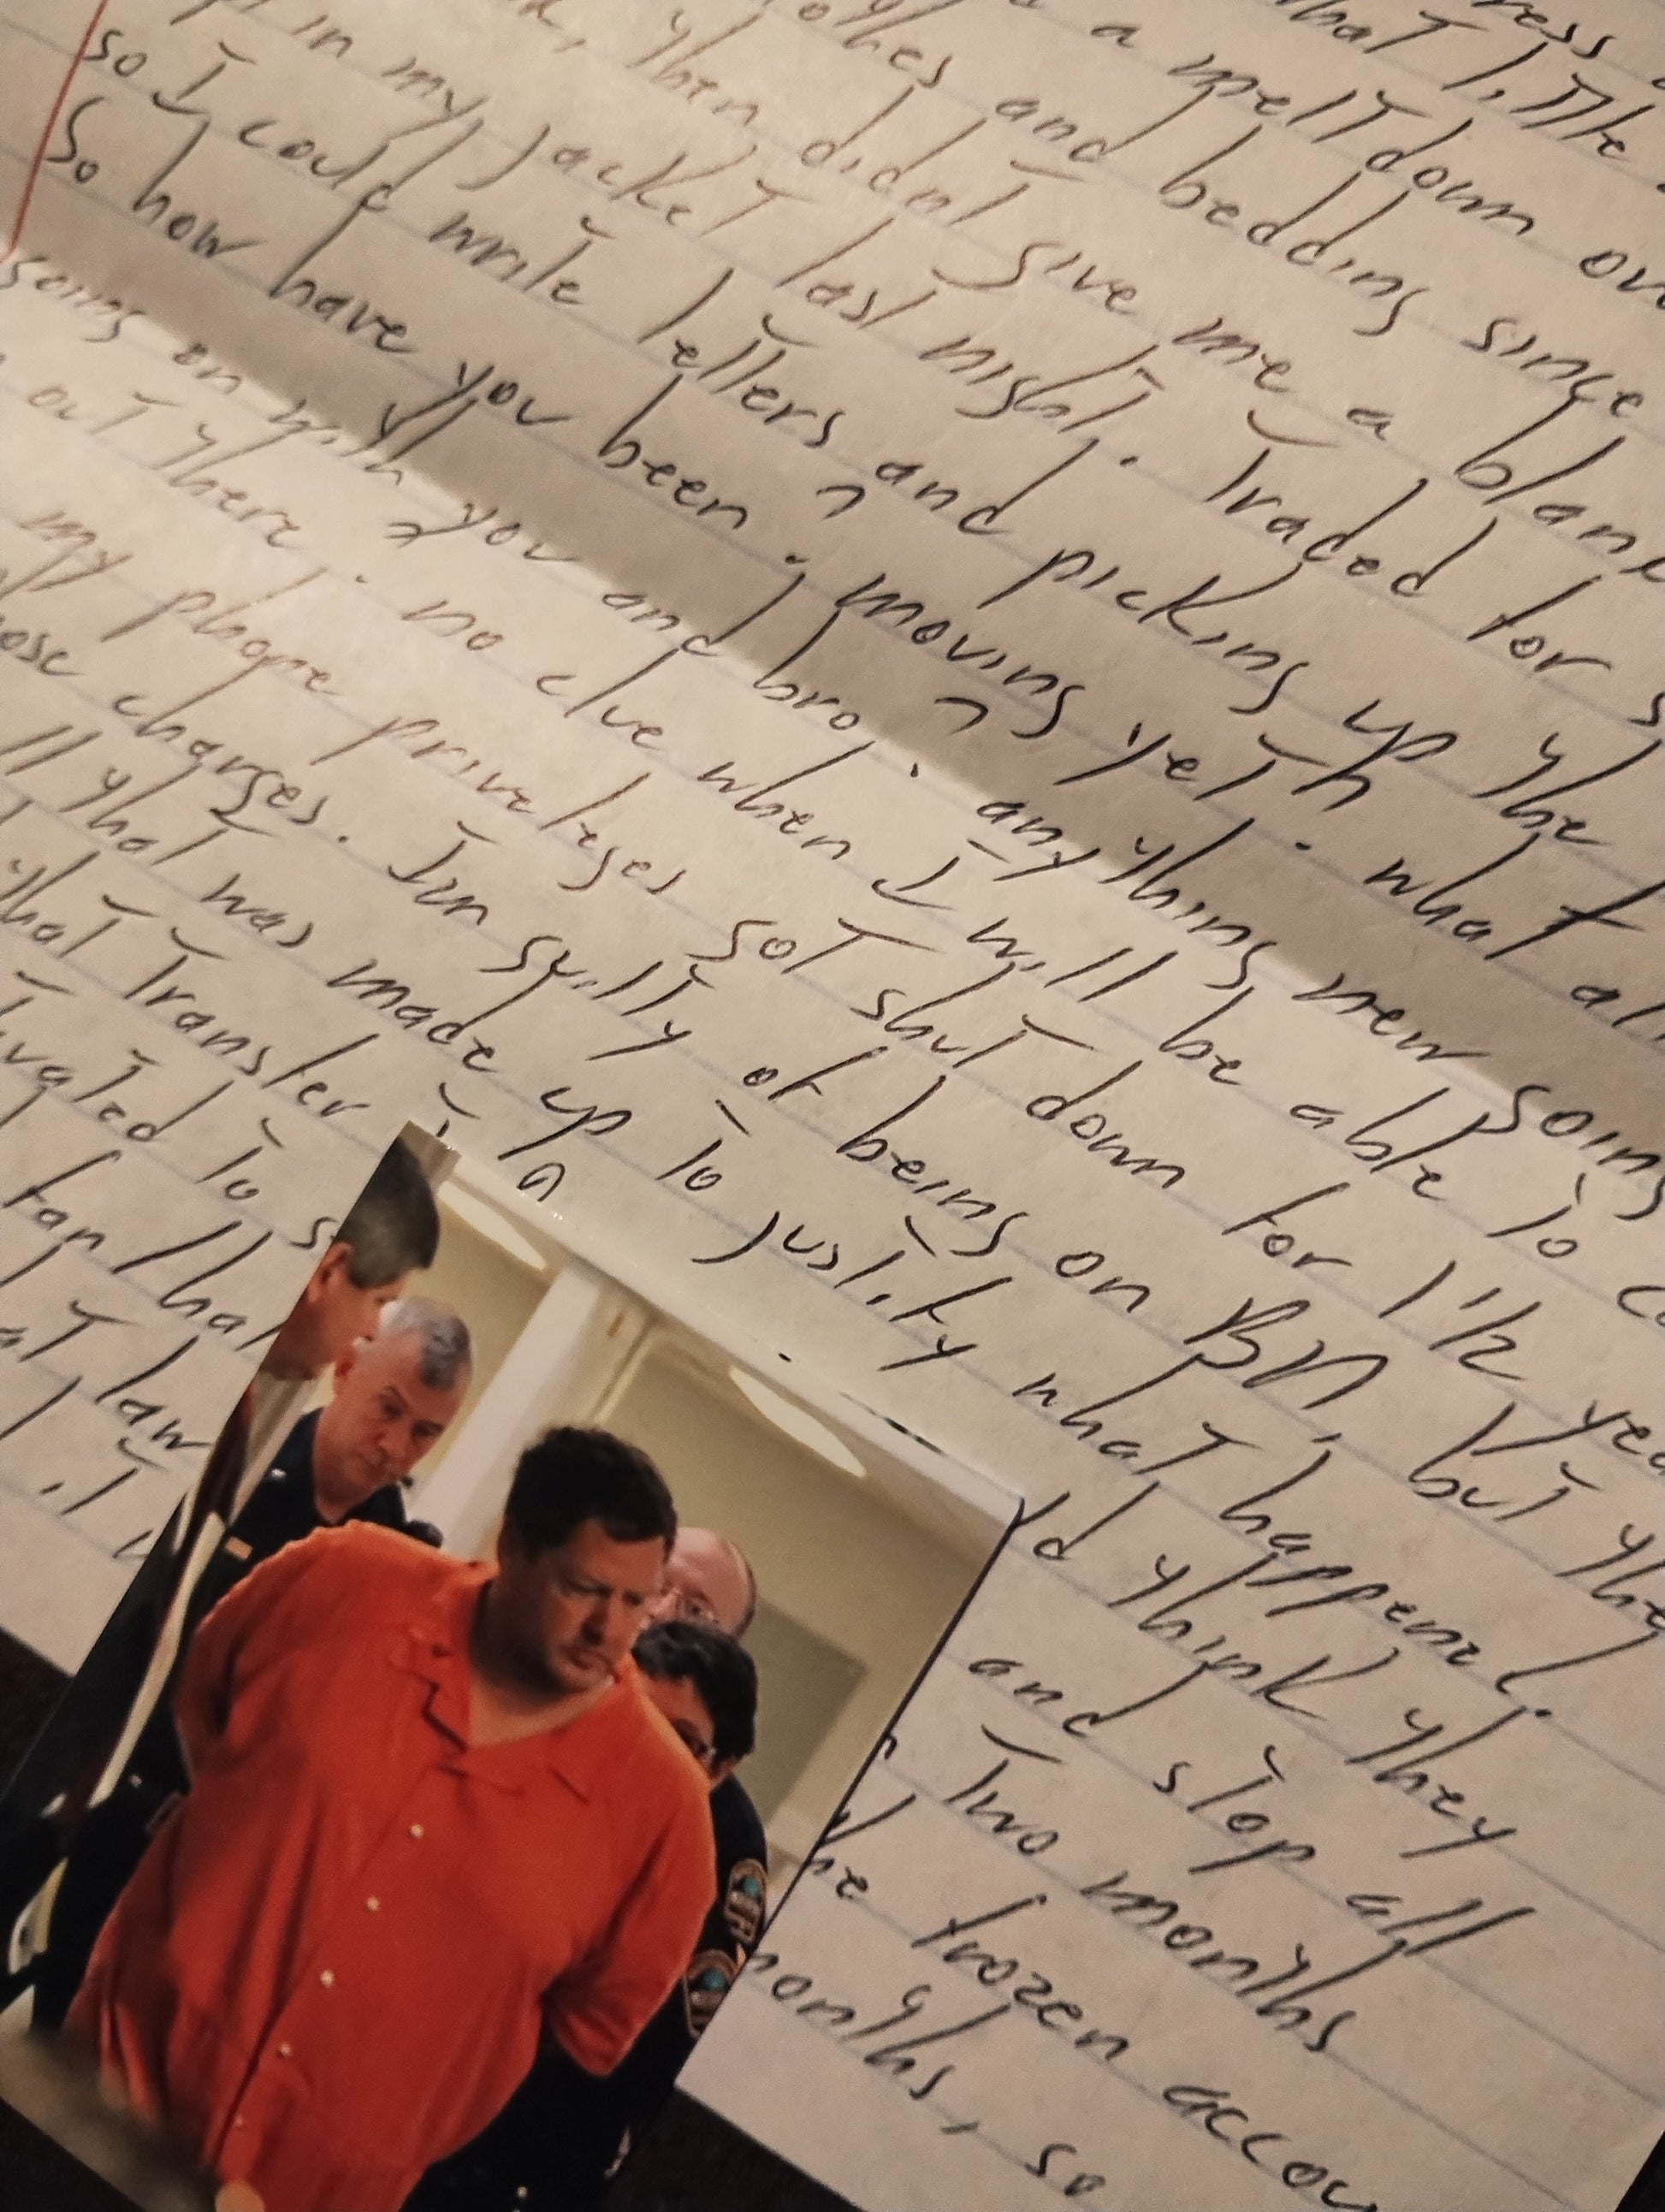 ress
hat little
a melt down ov
othes and bedding since
then didnt give me a blank
in my jacket last night. Traded for s
so I could write letters and picking up the
So how have you been? moving yet? what al
going on with you and bro. anything new going
out there. no clue when I will be able to c
my phone priveleges got shut down for 1 1/2 yea
ose charges. Im guilty of being on BM, but the
ll that was made up to justify what happened.
that transfer ld think they
vated to s and stop all
that two months
at law he frozen accou
it onths, so